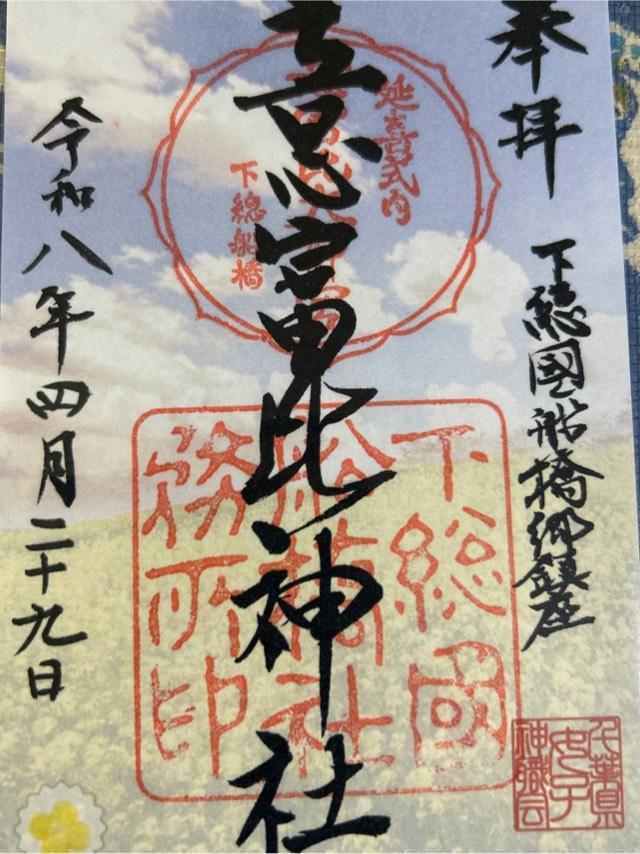 奉拝
下總國船橋郷鎮座
意富比神社
令和八年四月二十九日
延喜式内
下總船橋
下総國
船橋社
務所印
千葉県
女子
神職会